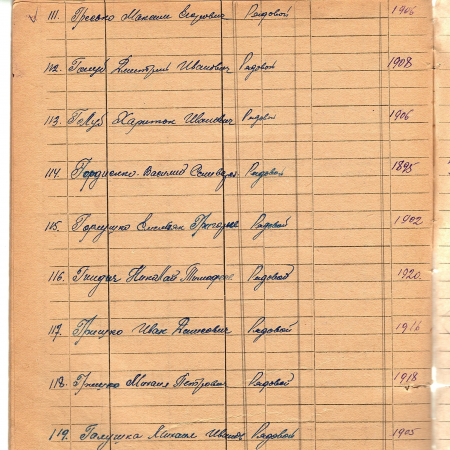 111. Гресько Максим Егорович Рядовой 1906
112. Голуб Дмитрий Иванович Рядовой 1908
113. Голуб Харитон Иванович Рядовой 1906
114. Гордиенко Василий Рядовой 1895
115. Горпушко Емельян Григорьев Рядовой 1902
116. Гнидич Николай Тимофеев Рядовой 1920
117. Гришко Иван Денисович Рядовой 1916
118. Гришко Михаил Петрович Рядовой 1918
119. Галушка Михаил Иванов Рядовой 1905